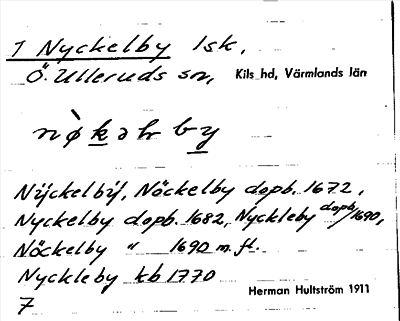 1 Nyckelby lsk.
Ö. Ulleruds sn, Kils hd, Värmlands län
Nÿckelbÿ, Nöckelby dopb. 1672,
Nyckelby dopb. 1682, Nyckleby dopb/1690,
Nöckelby " 1690 m. fl.
Nyckleby kb 1770
7 Herman Hultström 1911